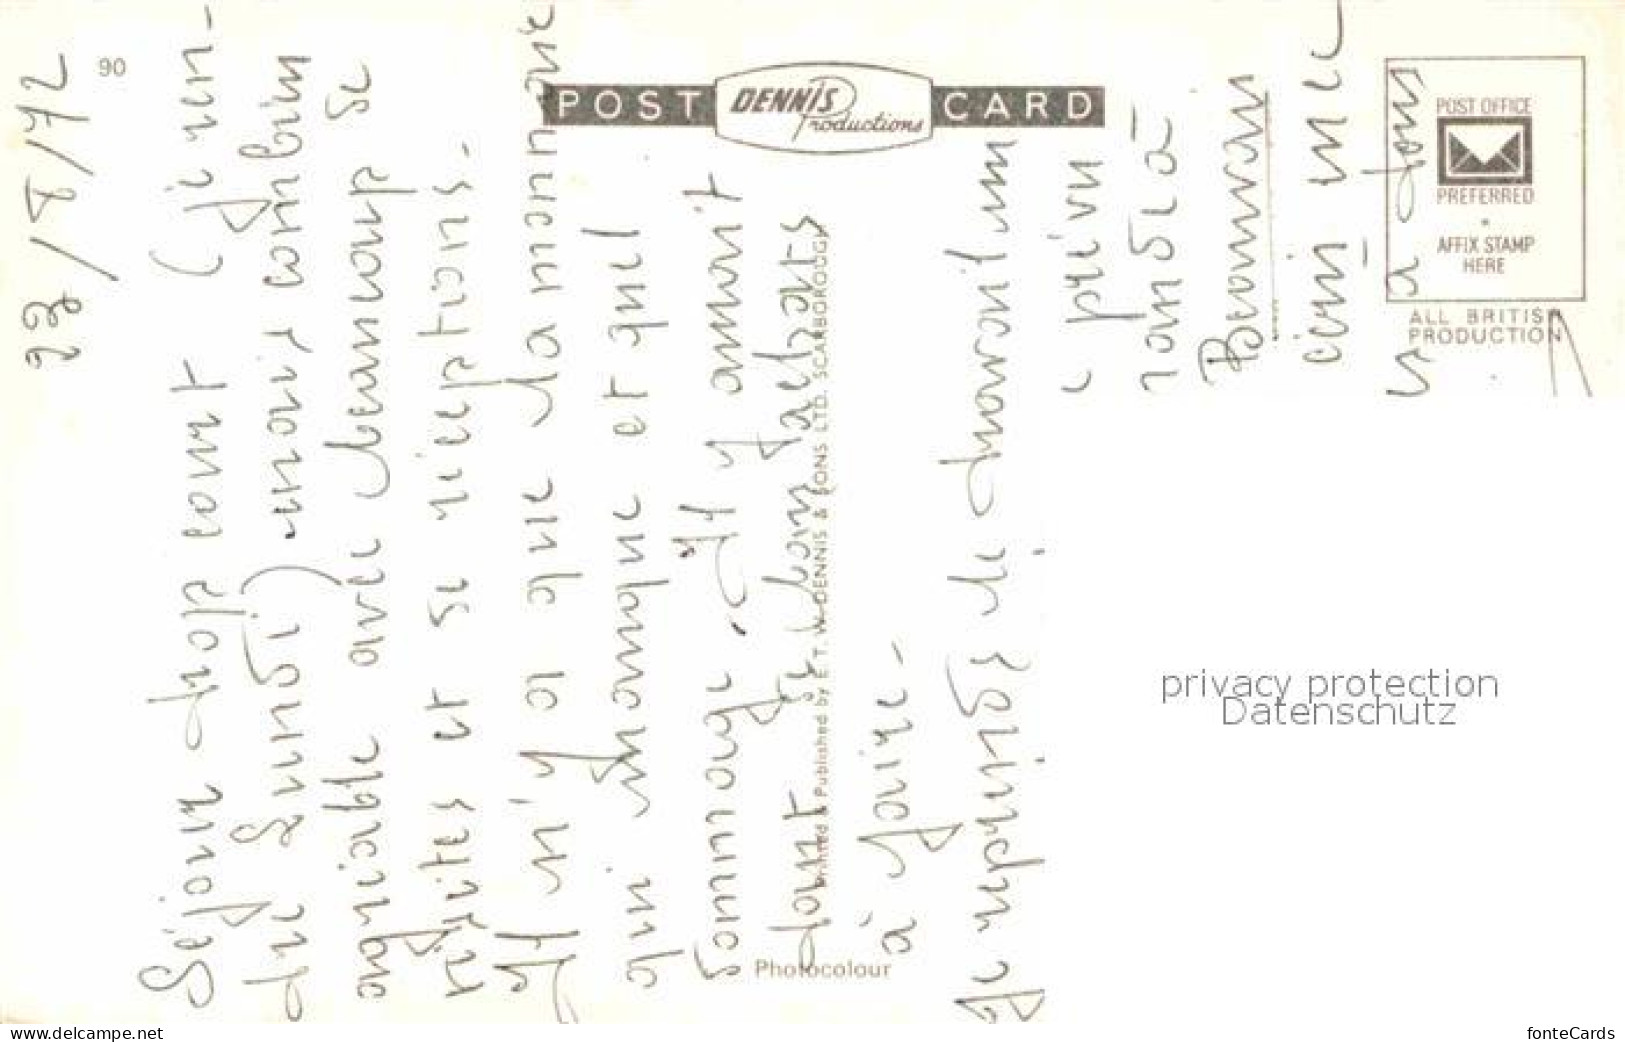 23/8/72
Séjour trop court (je ren-
tre lundi) mais combien
agréable avec beaucoup de
visites et de réceptions.
Il n'y a que la monnaie
qui manque et quel
dommage. Il y aurait
tant de bons achats
à faire.
Je reprends le travail un
Beauvais
90
POST CARD
DENNIS
Productions
POST OFFICE
PREFERRED
AFFIX STAMP
HERE
ALL BRITISH
PRODUCTION
Printed & Published by E. T. W. DENNIS & SONS LTD. SCARBOROUGH
Photocolour
privacy protection
Datenschutz
www.delcampe.net
fonteCards